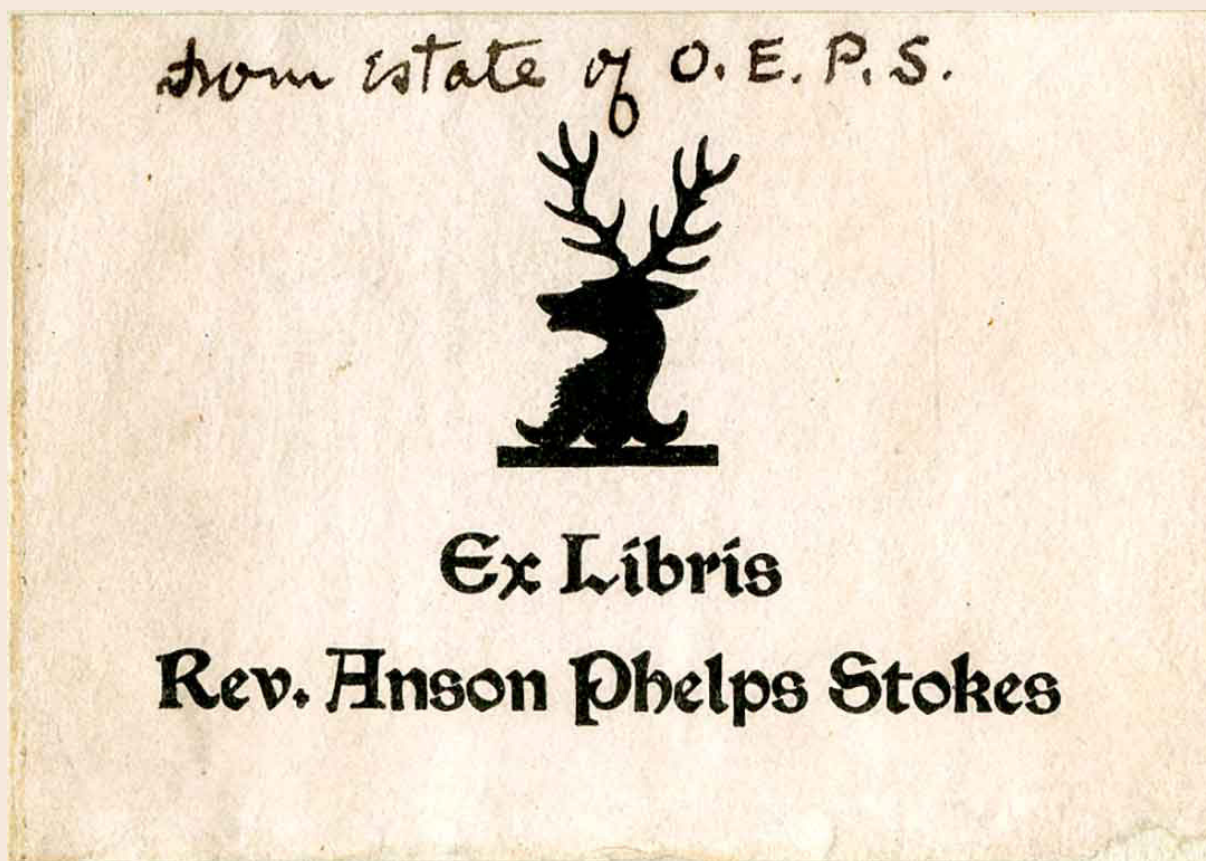 from Estate of O.E.P.S.
Ex Libris
Rev. Anson Phelps Stokes